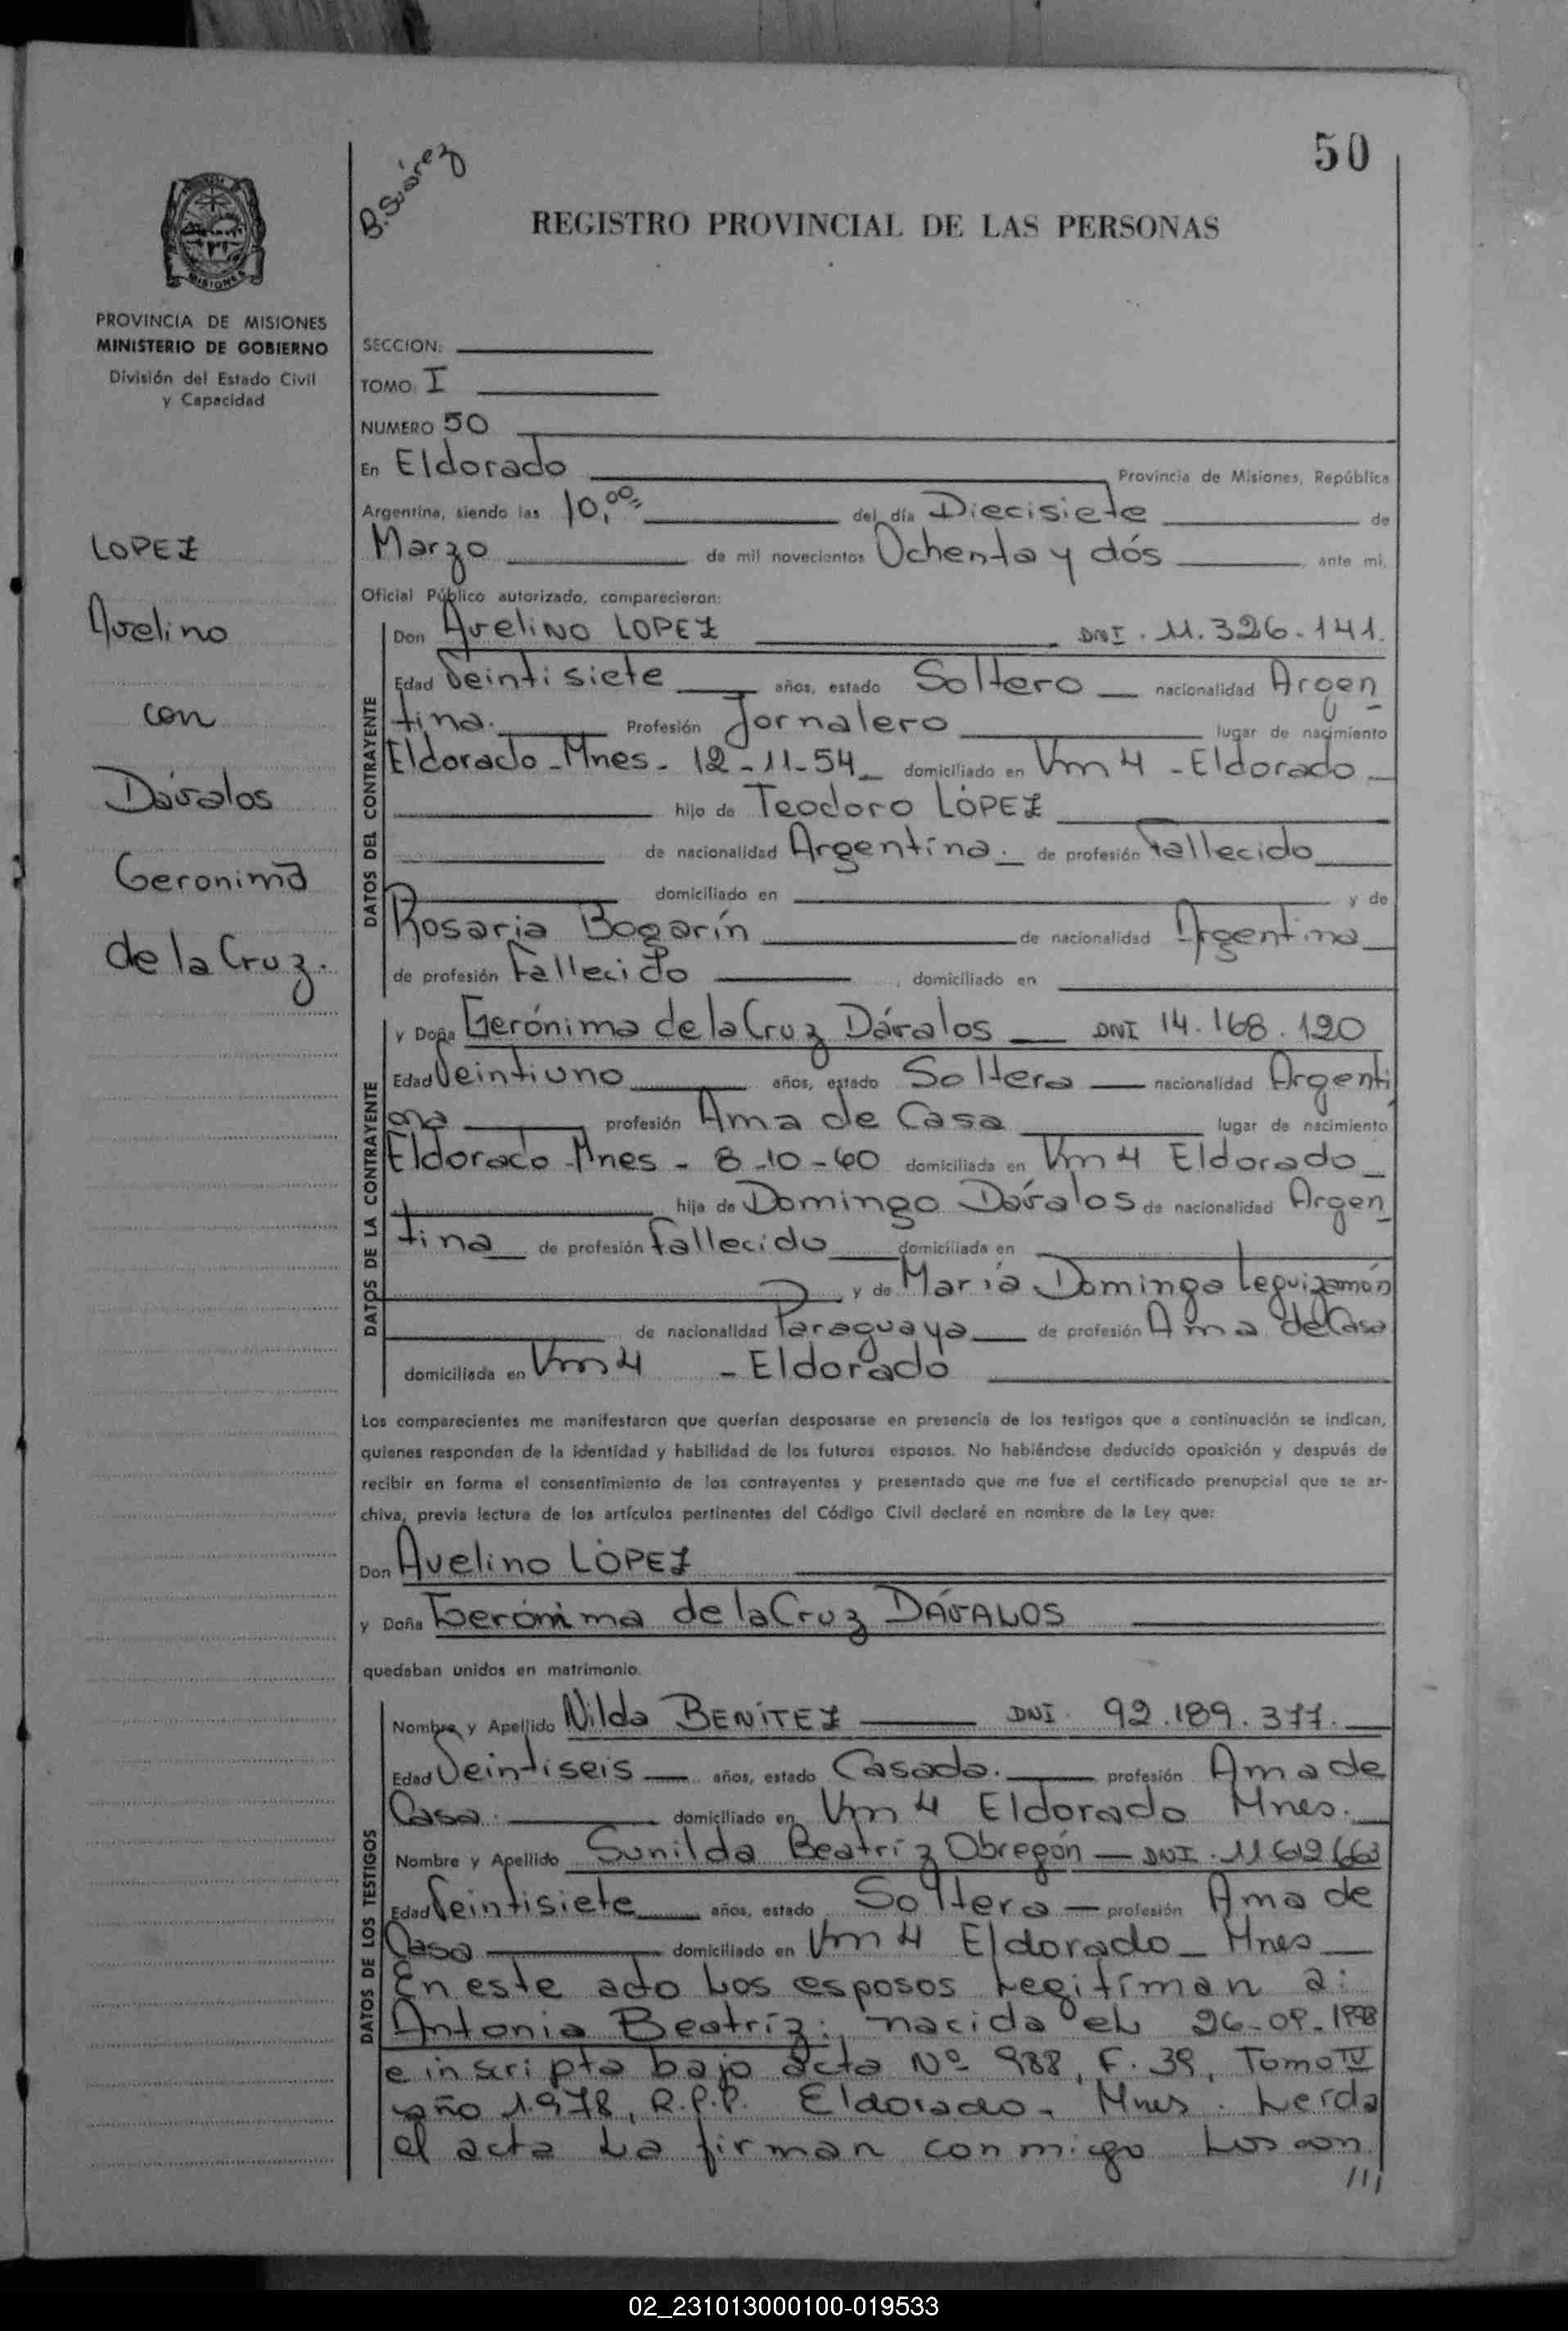 50
B. Suárez
REGISTRO PROVINCIAL DE LAS PERSONAS
MISIONES
PROVINCIA DE MISIONES
MINISTERIO DE GOBIERNO
División del Estado Civil
y Capacidad
LOPEZ
Avelino
con
Dávalos
Geronima
de la Cruz.
SECCION:
TOMO: I
NUMERO 50
En Eldorado Provincia de Misiones, República
Argentina, siendo las 10,00 del día Diecisiete de
Marzo de mil novecientos Ochenta y dós ante mi,
Oficial Público autorizado, comparecieron:
DATOS DEL CONTRAYENTE
Don Avelino LOPEZ DNI. 11.326.141.
Edad Veintisiete años, estado Soltero nacionalidad Argen
tina. Profesión Jornalero lugar de nacimiento
Eldorado - Mnes - 12-11-54 domiciliado en Km 4 - Eldorado
hijo de Teodoro LÓPEZ
de nacionalidad Argentina. de profesión Fallecido
domiciliado en y de
Rosaria Bogarín de nacionalidad Argentina
de profesión Fallecido, domiciliado en
DATOS DE LA CONTRAYENTE
y Doña Gerónima de la Cruz Dávalos DNI 14.168.120
Edad Veintiuno años, estado Soltera nacionalidad Argenti
na profesión Ama de Casa lugar de nacimiento
Eldorado - Mnes - 8-10-60 domiciliada en Km 4 Eldorado
hija de Domingo Dávalos de nacionalidad Argen
tina de profesión fallecido domiciliada en
y de María Dominga Leguizamón
de nacionalidad Paraguaya de profesión Ama de Casa
domiciliada en Km 4 - Eldorado
Los comparecientes me manifestaron que querían desposarse en presencia de los testigos que a continuación se indican,
quienes responden de la identidad y habilidad de los futuros esposos. No habiéndose deducido oposición y después de
recibir en forma el consentimiento de los contrayentes y presentado que me fue el certificado prenupcial que se ar-
chiva, previa lectura de los artículos pertinentes del Código Civil declaré en nombre de la Ley que:
Don Avelino LÓPEZ
y Doña Gerónima de la Cruz DÁVALOS
quedaban unidos en matrimonio.
DATOS DE LOS TESTIGOS
Nombre y Apellido Nilda BENÍTEZ DNI. 92.189.377.
Edad Veintiseis años, estado Casada. profesión Ama de
Casa. domiciliado en Km 4 Eldorado Mnes.
Nombre y Apellido Sunilda Beatríz Obregón - DNI. 11 612 663
Edad Veintisiete años, estado Soltera - profesión Ama de
Casa domiciliado en Km 4 Eldorado - Mnes
En este acto los esposos legitíman a:
Antonia Beatríz: nacida el 26-09-1978
e inscripta bajo acta Nº 988, F. 39, Tomo IV
año 1.978, R.P.P. Eldorado - Mnes. Leida
el acta la firman conmigo los con
///
02_231013000100-019533